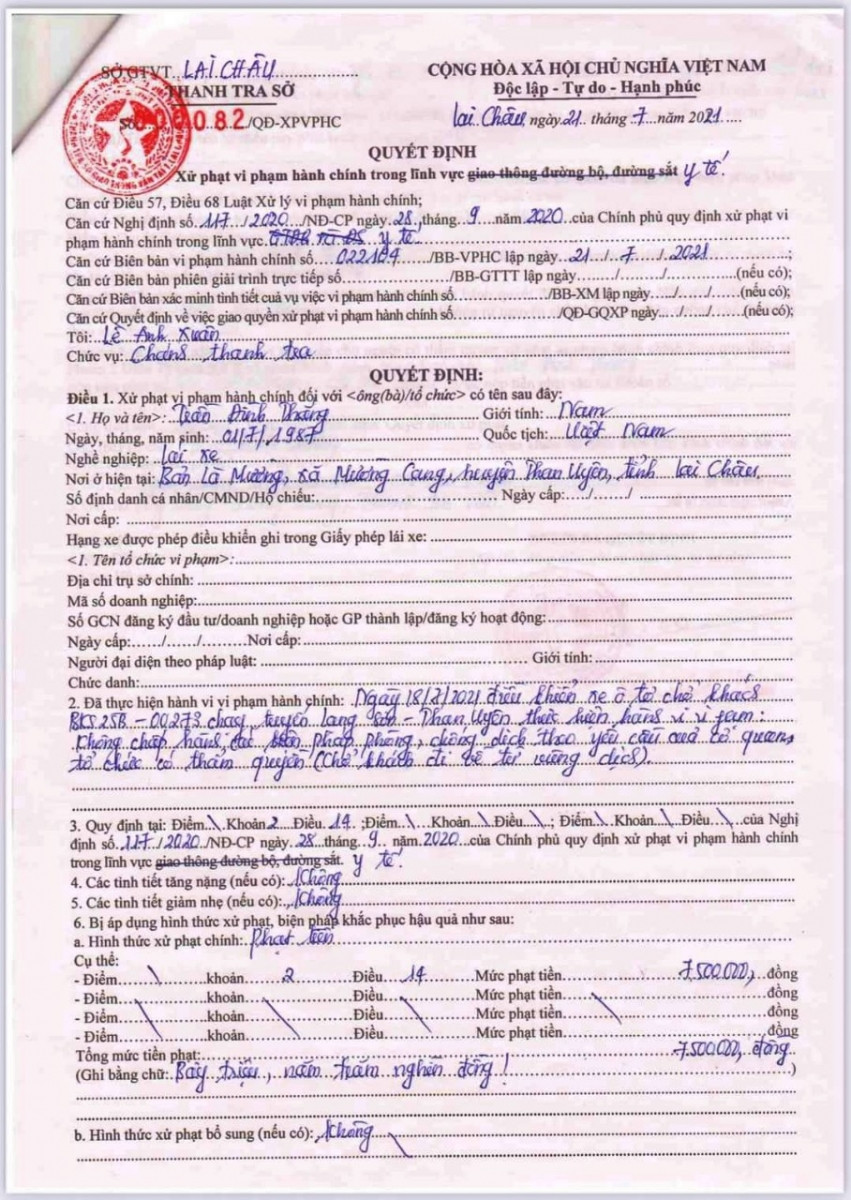 SỞ GTVT..LAI CHÂU....................
THANH TRA SỞ
Số 000082/QĐ-XPVPHC
CỘNG HÒA XÃ HỘI CHỦ NGHĨA VIỆT NAM
Độc lập - Tự do - Hạnh phúc
Lai Châu, ngày 21.. tháng ..7...năm 2021....
QUYẾT ĐỊNH
Xử phạt vi phạm hành chính trong lĩnh vực giao thông đường bộ, đường sắt y tế.
Căn cứ Điều 57, Điều 68 Luật Xử lý vi phạm hành chính;
Căn cứ Nghị định số..117../2020../NĐ-CP ngày.28..tháng...9...năm 2020...của Chính phủ quy định xử phạt vi
phạm hành chính trong lĩnh vực. GTĐB và ĐS y tế
Căn cứ Biên bản vi phạm hành chính số....022104....../BB-VPHC lập ngày...21..../..7..../..2021..........;
Căn cứ Biên bản phiên giải trình trực tiếp số................/BB-GTTT lập ngày......./......./..............(nếu có);
Căn cứ Biên bản xác minh tình tiết cuả vụ việc vi phạm hành chính số................/BB-XM lập ngày...../....../......(nếu có);
Căn cứ Quyết định về việc giao quyền xử phạt vi phạm hành chính số................/QĐ-GQXP ngày..../...../......(nếu có);
Tôi:...Lê Anh Xuân
Chức vụ: Chánh thanh tra
QUYẾT ĐỊNH:
Điều 1. Xử phạt vi phạm hành chính đối với <ông(bà)/tổ chức> có tên sau đây:
<1. Họ và tên>: Trần Đình Thắng Giới tính: Nam
Ngày, tháng, năm sinh: 01/7/1987 Quốc tịch: Việt Nam
Nghề nghiệp: Lái xe
Nơi ở hiện tại: Bản Là Mường, xã Mường Cang, huyện Than Uyên, tỉnh Lai Châu
Số định danh cá nhân/CMND/Hộ chiếu:............................ Ngày cấp:..../...../ ............
Nơi cấp: ............................
Hạng xe được phép điều khiển ghi trong Giấy phép lái xe: ............................
<1. Tên tổ chức vi phạm>:............................
Địa chỉ trụ sở chính: ............................
Mã số doanh nghiệp:............................
Số GCN đăng ký đầu tư/doanh nghiệp hoặc GP thành lập/đăng ký hoạt động:............................
Ngày cấp:....../....../.........Nơi cấp: ............................
Người đại diện theo pháp luật: ............................ Giới tính:............................
Chức danh:............................
2. Đã thực hiện hành vi vi phạm hành chính: Ngày 18/7/2021 điều khiển xe ô tô chở khách
BKS 25B - 00273 chạy tuyến Lạng Sơn - Than Uyên thực hiện hành vi vi phạm:
Không chấp hành các biện pháp phòng, chống dịch theo yêu cầu của cơ quan
tổ chức có thẩm quyền (Chở khách đi về từ vùng dịch).
3. Quy định tại: Điểm.\.Khoản 2...Điều..14 ;Điểm.\..Khoản.\..Điều.\...; Điểm.\.Khoản.\..Điều..\...của Nghị
định số..117./2020../NĐ-CP ngày...28...tháng..9..năm.2020....của Chính phủ quy định xử phạt vi phạm hành chính
trong lĩnh vực giao thông đường bộ, đường sắt. y tế.
4. Các tình tiết tăng nặng (nếu có): Không
5. Các tình tiết giảm nhẹ (nếu có): Không
6. Bị áp dụng hình thức xử phạt, biện pháp khắc phục hậu quả như sau:
a. Hình thức xử phạt chính: Phạt tiền
Cụ thể:
- Điểm......\......khoản......2......Điều......14......Mức phạt tiền............7.500.000,...đồng
- Điểm......\......khoản......\......Điều......\......Mức phạt tiền......\......đồng
- Điểm......\......khoản......\......Điều......\......Mức phạt tiền............đồng
- Điểm............khoản............Điều............Mức phạt tiền............đồng
Tổng mức tiền phạt:............7.500.000, đồng
(Ghi bằng chữ: Bảy triệu, năm trăm nghìn đồng!............)
b. Hình thức xử phạt bổ sung (nếu có): Không